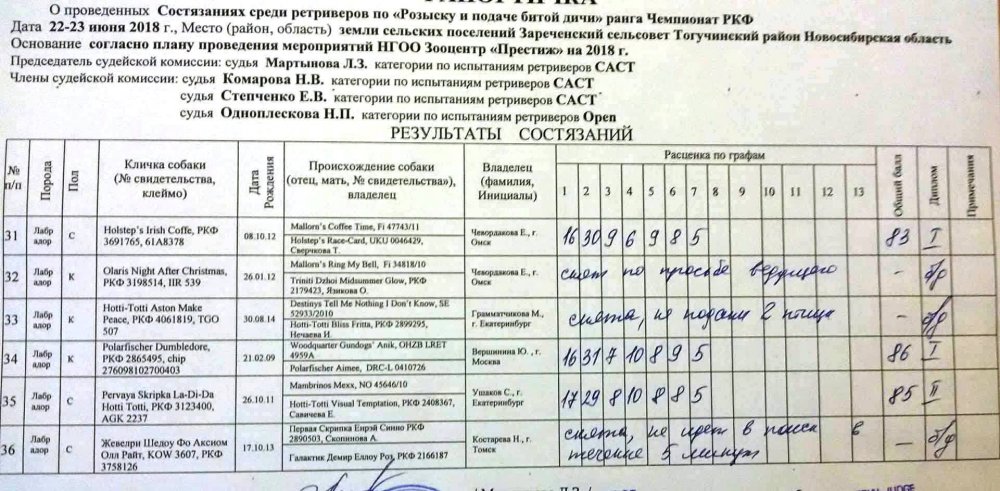 О проведенных Состязаниях среди ретриверов по «Розыску и подаче битой дичи» ранга Чемпионат РКФ
Дата 22-23 июня 2018 г., Место (район, область) земли сельских поселений Зареченский сельсовет Тогучинский район Новосибирская область
Основание согласно плану проведения мероприятий НГОО Зооцентр «Престиж» на 2018 г.
Председатель судейской комиссии: судья Мартынова Л.З. категории по испытаниям ретриверов САСТ
Члены судейской комиссии: судья Комарова Н.В. категории по испытаниям ретриверов САСТ
судья Степченко Е.В. категории по испытаниям ретриверов САСТ
судья Одноплескова Н.П. категории по испытаниям ретриверов Open
РЕЗУЛЬТАТЫ СОСТЯЗАНИЙ
№ п/п Порода Пол Кличка собаки (№ свидетельства, клеймо) Дата Рождения Происхождение собаки (отец, мать, № свидетельства»), владелец Владелец (фамилия, Инициалы) Расценка по графам Общий балл Диплом Примечания
1 2 3 4 5 6 7 8 9 10 11 12 13
31 Лабр адор С Holstep's Irish Coffe, РКФ 3691765, 61A8378 08.10.12 Mallorn's Coffee Time, Fi 47743/11 Holstep's Race-Card, UKU 0046429, Сверчкова Т. Чевордакова Е., г. Омск 16 30 9 6 9 8 5 83 I
32 Лабр адор К Olaris Night After Christmas, РКФ 3198514, IIR 539 26.01.12 Mallorn's Ring My Bell, Fi 34818/10 Triniti Dzhoi Midsummer Glow, РКФ 2179423, Язикова О. Чевордакова Е., г. Омск снят по просьбе ведущего – б/д
33 Лабр адор К Hotti-Totti Aston Make Peace, РКФ 4061819, TGO 507 30.08.14 Destinys Tell Me Nothing I Don't Know, SE 52933/2010 Hotti-Totti Bliss Fritta, РКФ 2899295, Нечаева И. Грамматчикова М., г. Екатеринбург снята, не подачи 2 птица – б/д
34 Лабр адор К Polarfischer Dumbledore, РКФ 2865495, chip 276098102700403 21.02.09 Woodquarter Gundogs' Anik, OHZB LRET 4959A Polarfischer Aimee, DRC-L 0410726 Вершинина Ю. , г. Москва 16 31 7 10 8 9 5 86 I
35 Лабр адор С Pervaya Skripka La-Di-Da Hotti Totti, РКФ 3123400, AGK 2237 26.10.11 Mambrinos Mexx, NO 45646/10 Hotti-Totti Visual Temptation, РКФ 2408367, Савичева Е. Ушаков С., г. Екатеринбург 17 29 8 10 8 8 5 85 II
36 Лабр адор С Жевелри Шедоу Фо Аксиом Олл Райт, KOW 3607, РКФ 3758126 17.10.13 Первая Скрипка Енрэй Синно РКФ 2890503, Скопинова А. Галактик Демир Еллоу Роз, РКФ 2166187 Костарева Н., г. Томск снята, не идет в поиск в течение 5 минут — б/д